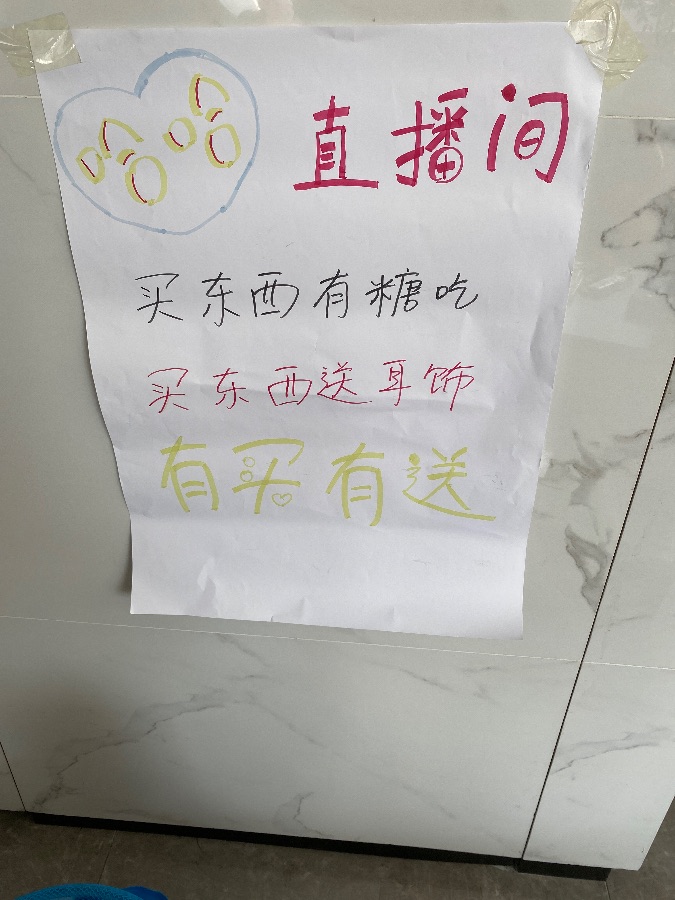 哈哈 直播间
买东西有糖吃
买东西送耳饰
有买有送